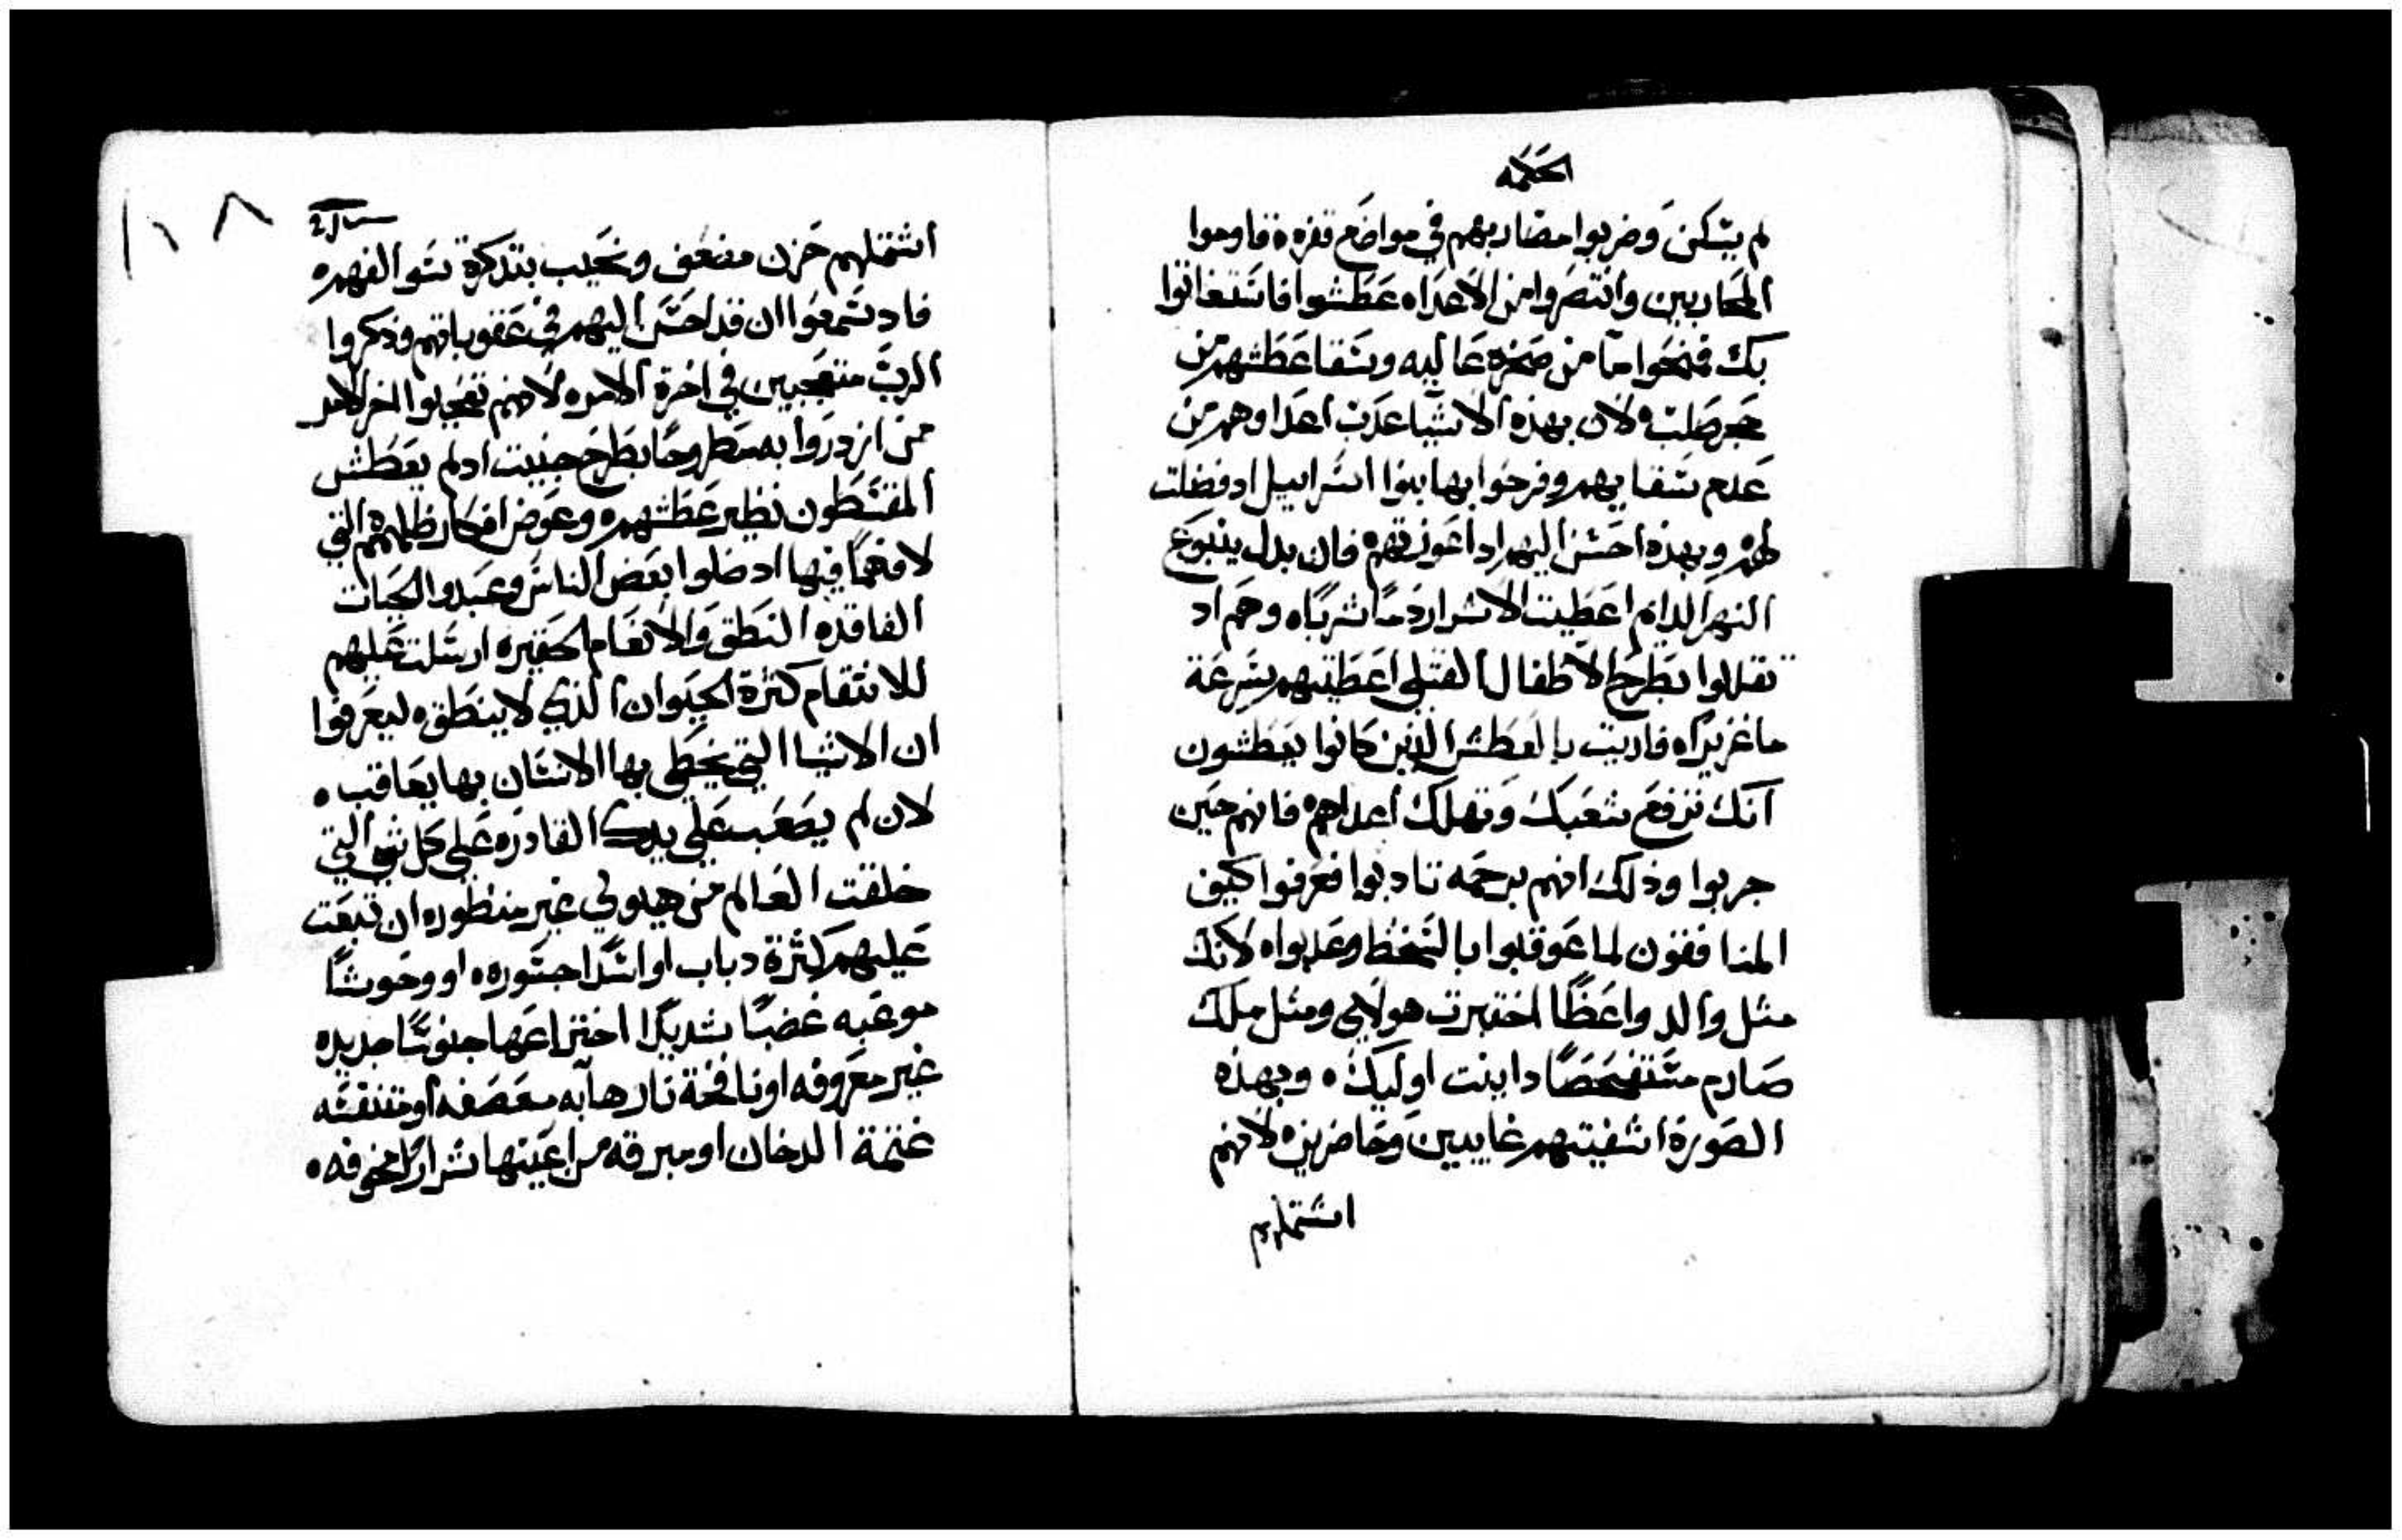 الحكمه
لم يسكن وضربوا مضاربهم في مواضع قفره قاوموا
المحاربين وانتصروا من الاعداه عطشوا فاستغاتوا
بك فمنحوا ما من صخره عاليه وسقا عطشهم من
حجر صلب لان بهذه الاشيا عدت اعداوهم من
عدم سقايهم وفرحوا بها بنوا اسراييل اد فضلت
لهم وبهذه احسن اليهم ادا عوزتهم فان بدل ينبوع
النهر الدايم اعطيت الاشرار دما شرباه وهم اد
تقللوا بطرح الاطفال القتلي اعطيتهم بسرعة
ما غزيراه فاريت بالعطش الذين كانوا يعطشون
انك ترفع شعبك وتهلك اعداهم فانهم حين
جربوا وذلك انهم برحمه تادبوا فعرفوا كيف
المنافقون لما عوقبوا بالسخط وعدبواه لانك
مثل والد واعظا اختبرت هولاي ومثل ملك
صارم مستفحصا داينت اوليك وبهذه
الصورة اشفيتهم غايبين وحاضرين لانهم
اشتملهم
اشتملهم حزن مضعف ونحيب بتذكرة سو الفهم
فاد سمعوا ان قد احسن اليهم في عقوباتهم وذكروا
الرب متعجبين في اخرة الامره لانهم تعجبوا اخر الامر
من ازدروا به مطروحا بطرح خبيث اد لم يعطش
المقسطون نظير عطشهم وعوض افكار ظلمهم التي
لا فهما فيها اد ضلوا بعض الناس وعبدوا الحيات
الفاقده النطق والانعام الحقيره ارسلت عليهم
للانتقام كثرة الحيوان الذي لا ينطق ليعرفوا
ان الاشيا التي يخطي بها الانسان بها يعاقب
لان لم يصعب علي يدك القادره علي كل شي التي
خلقت العالم من هيولي غير منظوره ان تبعت
عليهم كثرة دباب او اسدا جسوره او وحوشا
موعبه غضبا شديدا اختراعها جنوسا جديده
غير معروفه او نافخة نار هابه معصفه او متنفسه
غتمة الدخان او مبرقه من اعينها شرارا مخوفه